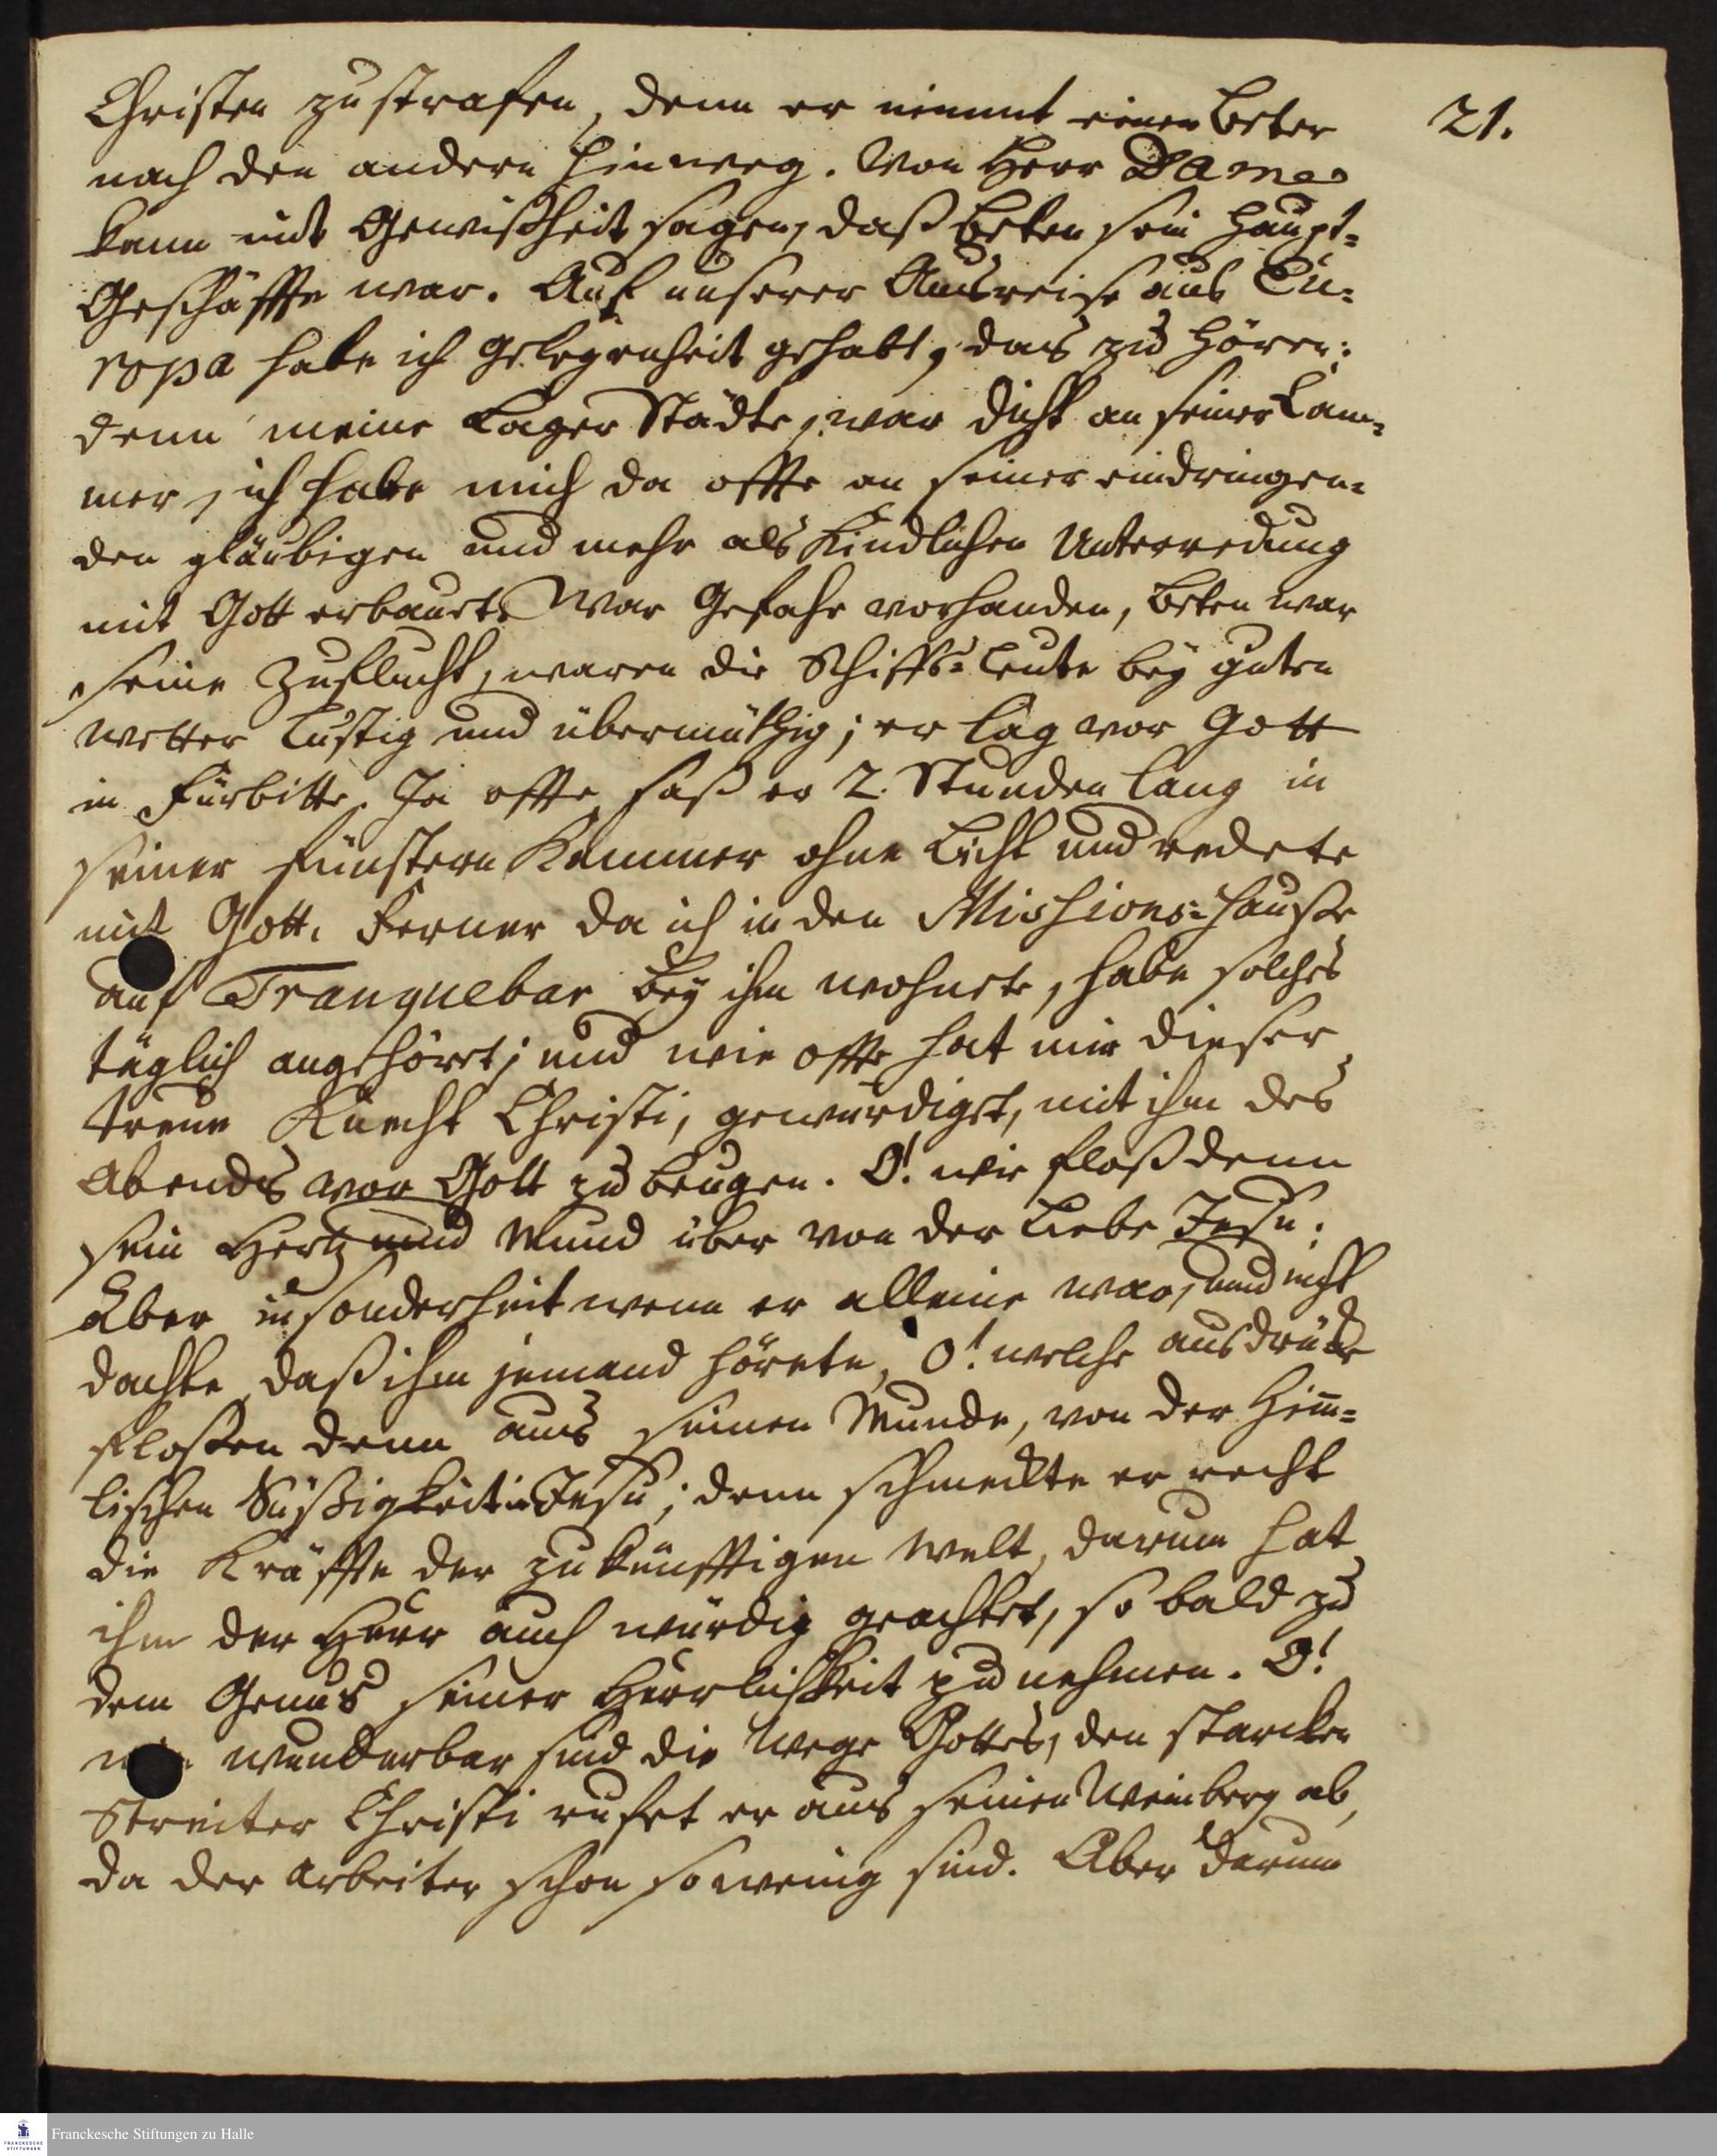 21.
Christen zu strafen, denn er nimmt einen Beter
nach den andern hinweg. Von Herr Dames
kann mit Gewißheit sagen, daß beten sein Haupt=
Geschäffte war. Auf unserer Ausreise aus Eu=
ropa habe ich Gelegenheit gehabt, das zu hören:
denn meine Lager Städte, war dicht an seiner Cam=
mer, ich habe mich da offte an seiner eindringen=
den gläubigen und mehr als Kindlichen Unterredung
mit Gott erbauet. War Gefahr vorhanden, beten war
seine Zuflucht, waren die Schiffs=Leute bey guten
wetter Lustig und übermüthig; er lag vor Gott
in Fürbitte. Ja offte saß er 2. Stunden lang in
seiner fünstern Kammer ohne Licht und redete
mit Gott. Ferner da ich in den Missions=Hause
auf Tranquebar bey ihm wohnete, habe solches
täglich angehöret; und wie offte hat mir dieser
treue Knecht Christi, gewürdiget, mit ihm des
Abends vor Gott zu beugen. O! wie floß denn
sein Hertz und Mund über von der Liebe Jesu:
Aber insonderheit wenn er alleine war, und nicht
dachte, daß ihm jemand hörete, O! welche ausdrücke
floßen denn aus seinen Munde, von der Him̄=
lischen Süßigkeit in Jesu; denn schmeckte er recht
die Kräffte der zukünfftigen Welt, darum hat
ihm der Herr auch würdig geachtet, so bald zu
dem Genus seiner Herrlichkeit zu nehmen. O!
wie wunderbar sind die Wege Gottes, den starcken
Streiter Christi rufet er aus seinen Weinberg ab,
da der Arbeiter schon so wenig sind. Aber darum
Franckesche Stiftungen zu Halle
FRANCKESCHE
STIFTUNGEN